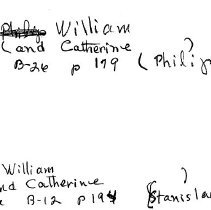 William
( and Catherine )
B-26 p 179 ( Philip
William
nd Catherine )
B-12 p 194 ( Stanisla